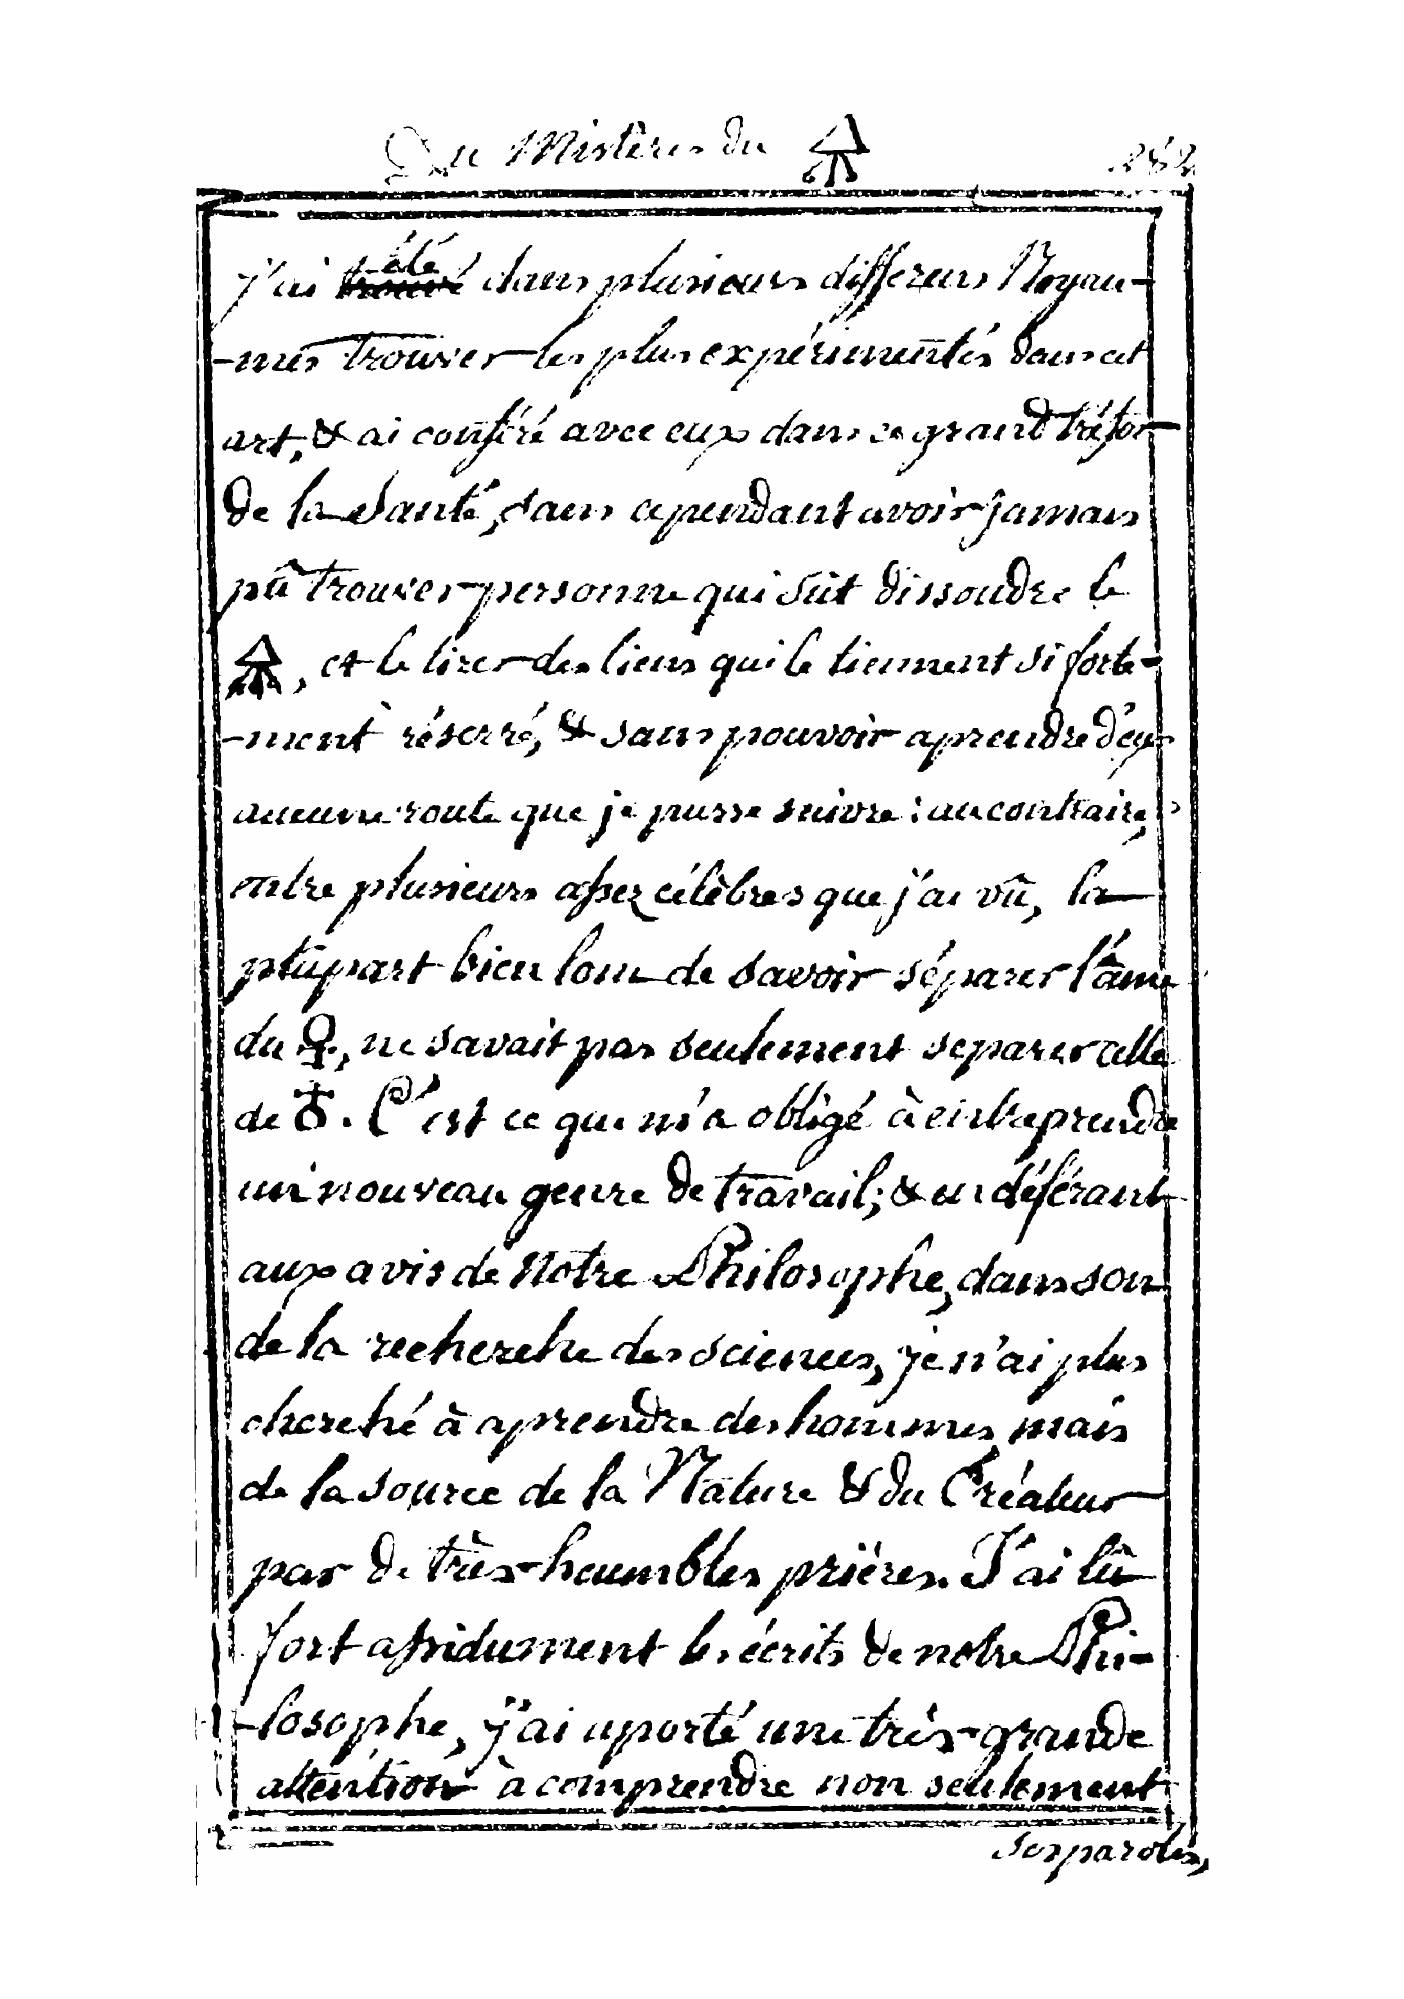 Du Mistères du 🜍 282
j'ai été dans plusieurs differens Royau-
-mes trouver les plus expérimentés dans cet
art, & ai conféré avec eux dans ce grand trésor
de la Santé, sans cependant avoir jamais
pû trouver personne qui sût dissoudre le
🜍, et le tirer des liens qui le tiennent si forte-
-ment réserré, & sans pouvoir aprendre d'eux
aucune route que je pusse suivre : au contraire,
entre plusieurs assez célèbres que j'ai vû, la
plûpart bien loin de savoir séparer l'âme
du ♀, ne savait pas seulement separer celle
de ♁. C'est ce qui m'a obligé à entreprendre
un nouveau genre de travail; & en déférant
aux avis de Notre Philosophe, dans son
de la recherche des sciences, je n'ai plus
cherché à aprendre des hommes mais
de la source de la Nature & du Créateur
par de très-heumbles priéres. J'ai lû
fort assidument les écrits de notre Phi-
-losophe, j'ai aporté une très-grande
attention à comprendre non seulement
ses paroles,